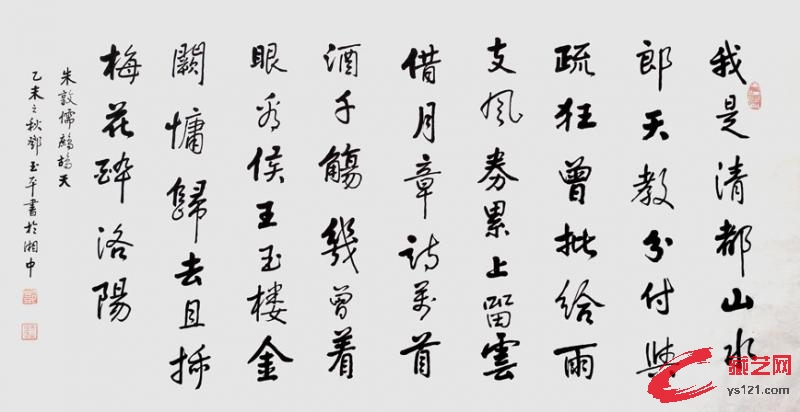 我是清都山水
郎天教分付與
疏狂曾批給雨
支風券累上留雲
借月章詩萬首
酒千觴幾曾着
眼看侯王玉楼金
闕慵歸去且插
梅花醉洛陽
朱敦儒鹧鸪天
乙未之秋鄧玉平書於湘中
藏艺网
ys121.com